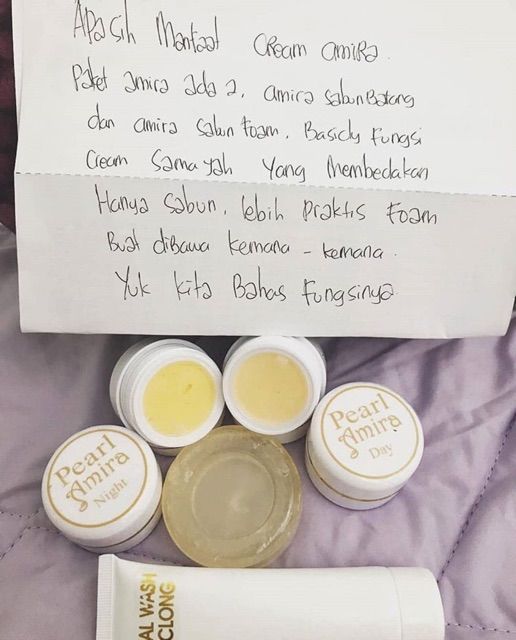 Apa sih Manfaat Cream amira.
Paket amira ada 2, amira sabun Batang
dan amira sabun foam. Basicly fungsi
Cream sama yah yang Membedakan
Hanya sabun, lebih praktis foam
Buat dibawa kemana - kemana.
Yuk kita Bahas fungsinya.
Pearl
Amira
Night
Pearl
Amira
Day
AL WASH
CLONG